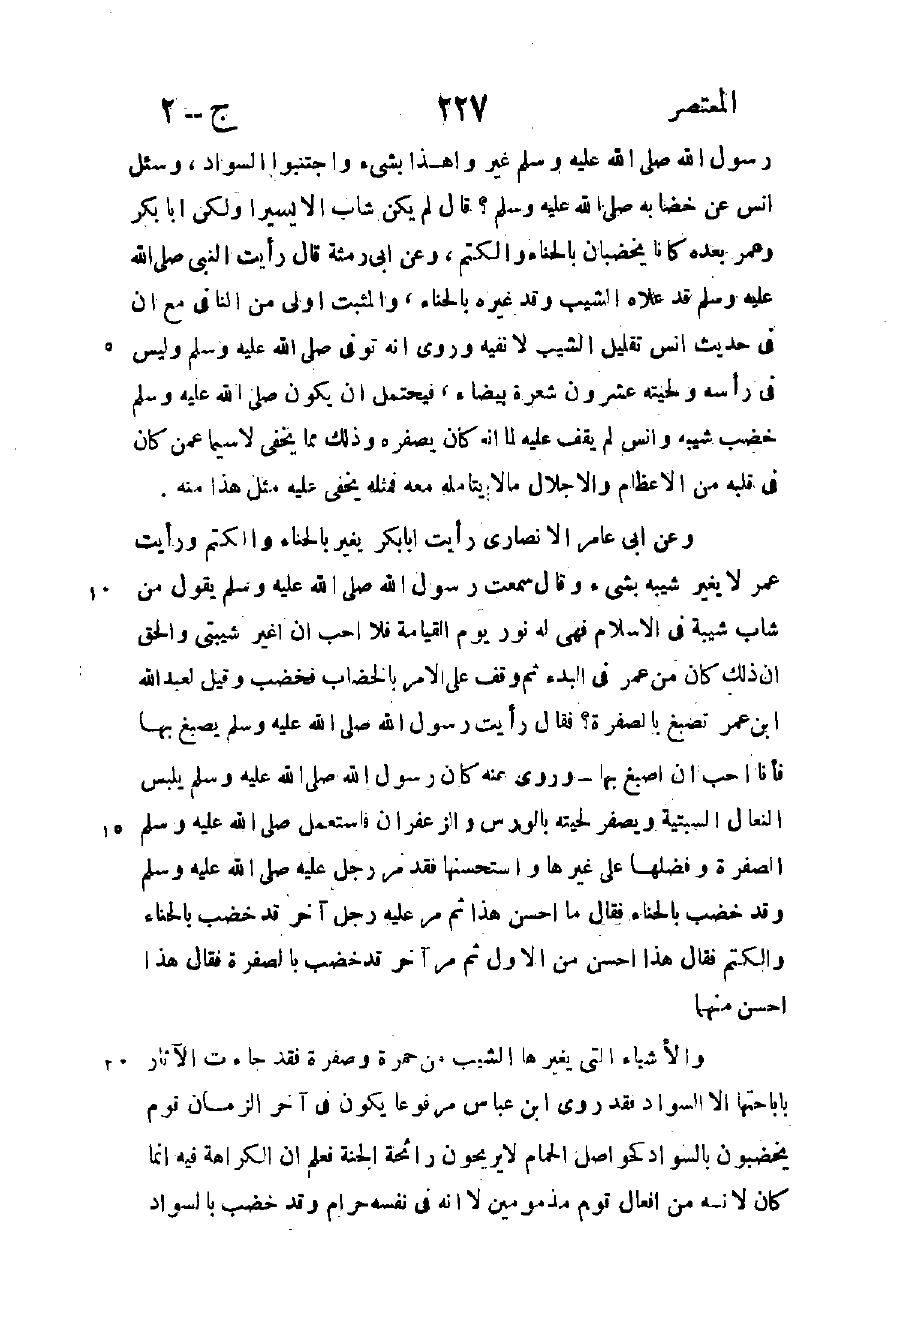 المعتصر ٢٢٧ ج--٢
رسول الله صلى الله عليه وسلم غيروا هذا بشىء واجتنبوا السواد، وسئل
انس عن خضابه صلى الله عليه وسلم؟ قال لم يكن شاب الا يسيرا ولكن ابا بكر
وعمر بعده كانا يخضبان بالحناء والكتم، وعن ابى رمثة قال رأيت النبى صلى الله
عليه وسلم قد علاه الشيب وقد غيره بالحناء، والمثبت اولى من النافى مع ان
فى حديث انس تقليل الشيب لا نفيه وروى انه توفى صلى الله عليه وسلم وليس ٥
فى رأسه ولحيته عشرون شعرة بيضاء، فيحتمل ان يكون صلى الله عليه وسلم
خضب شيبه وانس لم يقف عليه لما انه كان يصفره وذلك مما يخفى لاسيما عمن كان
فى قلبه من الاعظام والاجلال مالا يتامله معه فمثله يخفى عليه مثل هذا منه.
وعن ابى عامر الانصارى رأيت ابابكر يغير بالحناء والكتم ورأيت
عمر لا يغير شيبه بشىء وقال سمعت رسول الله صلى الله عليه وسلم يقول من ١٠
شاب شيبة فى الاسلام فهى له نور يوم القيامة فلا احب ان اغير شيبتى والحق
ان ذلك كان من عمر فى البدء ثم وقف على الامر بالخضاب فخضب وقيل لعبد الله
ابن عمر تصبغ بالصفرة؟ فقال رأيت رسول الله صلى الله عليه وسلم يصبغ بها
فأنا احب ان اصبغ بها - وروى عنه كان رسول الله صلى الله عليه وسلم يلبس
النعال السبتية ويصفر لحيته بالورس والزعفران فاستعمل صلى الله عليه وسلم ١٥
الصفرة وفضلها على غيرها واستحسنها فقد مر رجل عليه صلى الله عليه وسلم
وقد خضب بالحناء فقال ما احسن هذا ثم مر عليه رجل آخر قد خضب بالحناء
والكتم فقال هذا احسن من الاول ثم مر آخر قد خضب بالصفرة فقال هذا
احسن منها
والأشياء التى يغيرها الشيب من حمرة وصفرة فقد جاءت الآثار ٢٠
باباحتها الا السواد فقد روى ابن عباس مرفوعا يكون فى آخر الزمان قوم
يخضبون بالسواد كحواصل الحمام لا يريحون رائحة الجنة فعلم ان الكراهة فيه انما
كان لانه من افعال قوم مذمومين لا انه فى نفسه حرام وقد خضب بالسواد